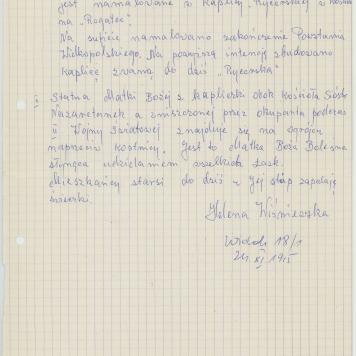 jest namalowane w Kaplicy „Rycerskiej" w
na „Rogatce".
Na suficie namalowano zakończenie Powstania
Wielkopolskiego. Na powyższą intencję zbudowano
kaplicę zwaną do dziś „Rycerska"
Statua Matki Bożej z kapliczki obok Kościoła Sióstr
Nazaretanek a zniszczonej przez okupanta podczas
II Wojny Światowej znajduje się na
naprzeciw kostnicy. Jest to Matka Boża Bolesna
słynąca udzielaniem wszelkich łask.
Mieszkańcy starsi do dziś u Jej stóp zapalają
świeczki.
Helena Wiśniewska
18/1
24. XI 1975